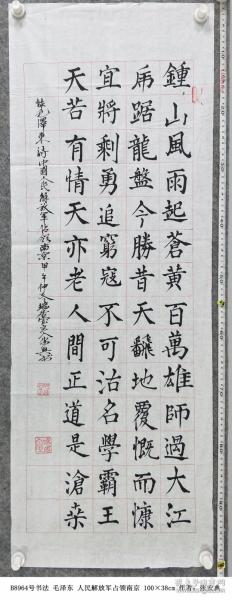 鍾山風雨起蒼黄百萬雄師過大江
虎踞龍盤今勝昔天飜地覆慨而慷
宜將剩勇追窮寇不可沽名學霸王
天若有情天亦老人間正道是滄桒
毛澤東詩中國人民解放軍佔領南京甲午仲夏
B8964号书法 毛泽东 人民解放军占领南京 100×38cm 作者：张安典